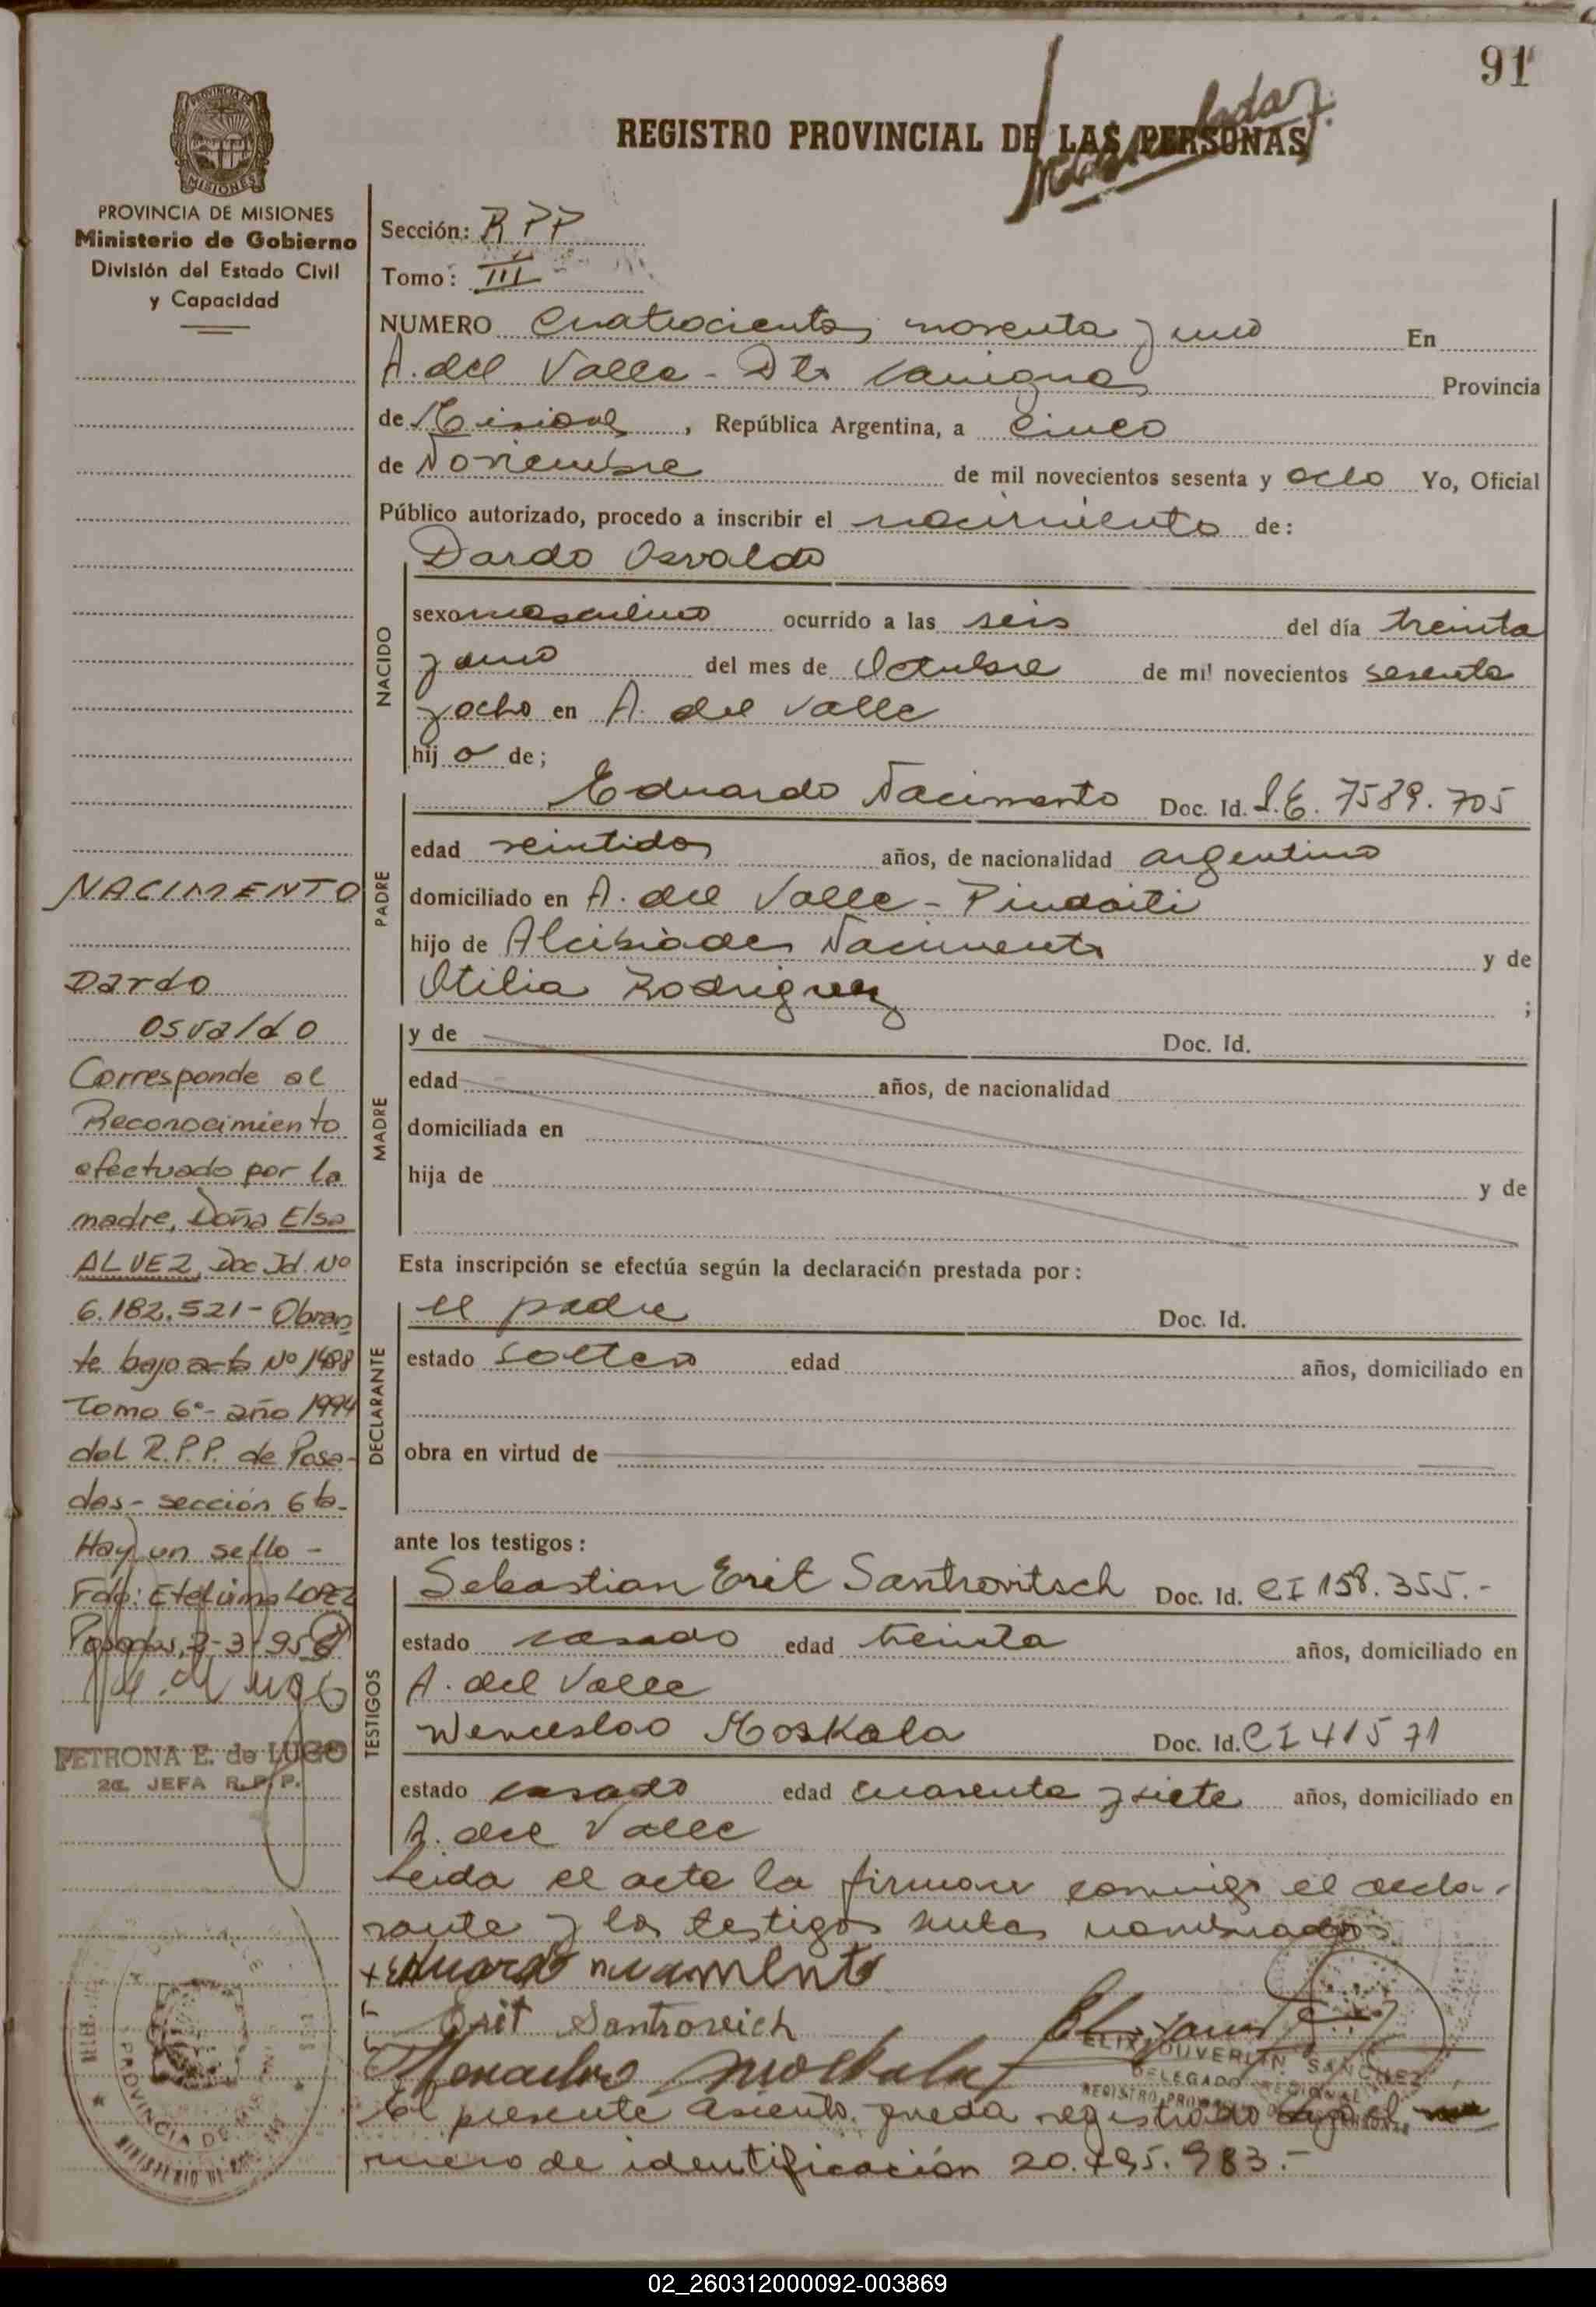 91
REGISTRO PROVINCIAL DE LAS PERSONAS
PROVINCIA DE
MISIONES
PROVINCIA DE MISIONES
Ministerio de Gobierno
División del Estado Civil
y Capacidad
Sección: R P P
Tomo: III
NUMERO Cuatrocientos noventa y uno En
A. del Valle - Dto Cainguas Provincia
de Misiones, República Argentina, a Cinco
de Noviembre de mil novecientos sesenta y ocho Yo, Oficial
Público autorizado, procedo a inscribir el nacimiento de:
Dardo Osvaldo
NACIDO
sexo masculino ocurrido a las seis del día treinta
y uno del mes de Octubre de mil novecientos sesenta
y ocho en A. del Valle
hij o de;
PADRE
Eduardo Nacimento Doc. Id. L.E. 7589.705
edad veintidos años, de nacionalidad argentino
domiciliado en A. del Valle - Pindaiti
hijo de Alcibiades Nacimento y de
Otilia Rodriguez ;
MADRE
y de Doc. Id.
edad años, de nacionalidad
domiciliada en
hija de y de
Esta inscripción se efectúa según la declaración prestada por:
DECLARANTE
el padre Doc. Id.
estado soltero edad años, domiciliado en
obra en virtud de
ante los testigos:
TESTIGOS
Sebastian Erit Santrovitsch Doc. Id. CI 158.355.-
estado casado edad treinta años, domiciliado en
A. del Valle
Wenceslao Moskala Doc. Id. CI 41571
estado casado edad cuarenta y siete años, domiciliado en
A. del Valle
Leida el acta la firman conmigo el decla-
rante y los testigos antes nombrados
Erit Santrovich
ELIX DUVERLIN SANCHEZ
DELEGADO REGIONAL
El presente asiento queda registrado bajo el
mero de identificación 20.495.983.-
NACIMENTO
Dardo
Osvaldo
Corresponde al
Reconocimiento
efectuado por la
madre, Doña Elsa
ALVEZ, Doc Id. Nº
6.182.521- Obran
te bajo acta Nº 1488
Tomo 6º- año 1994
del R.P.P. de Posa-
das- sección 6ta-
Hay un sello -
Fdo: Etelvina LOPEZ
Posadas,
PETRONA E. de LUGO
2a. JEFA R.P.P.
PROVINCIA DE
MINISTERIO DE
02_260312000092-003869